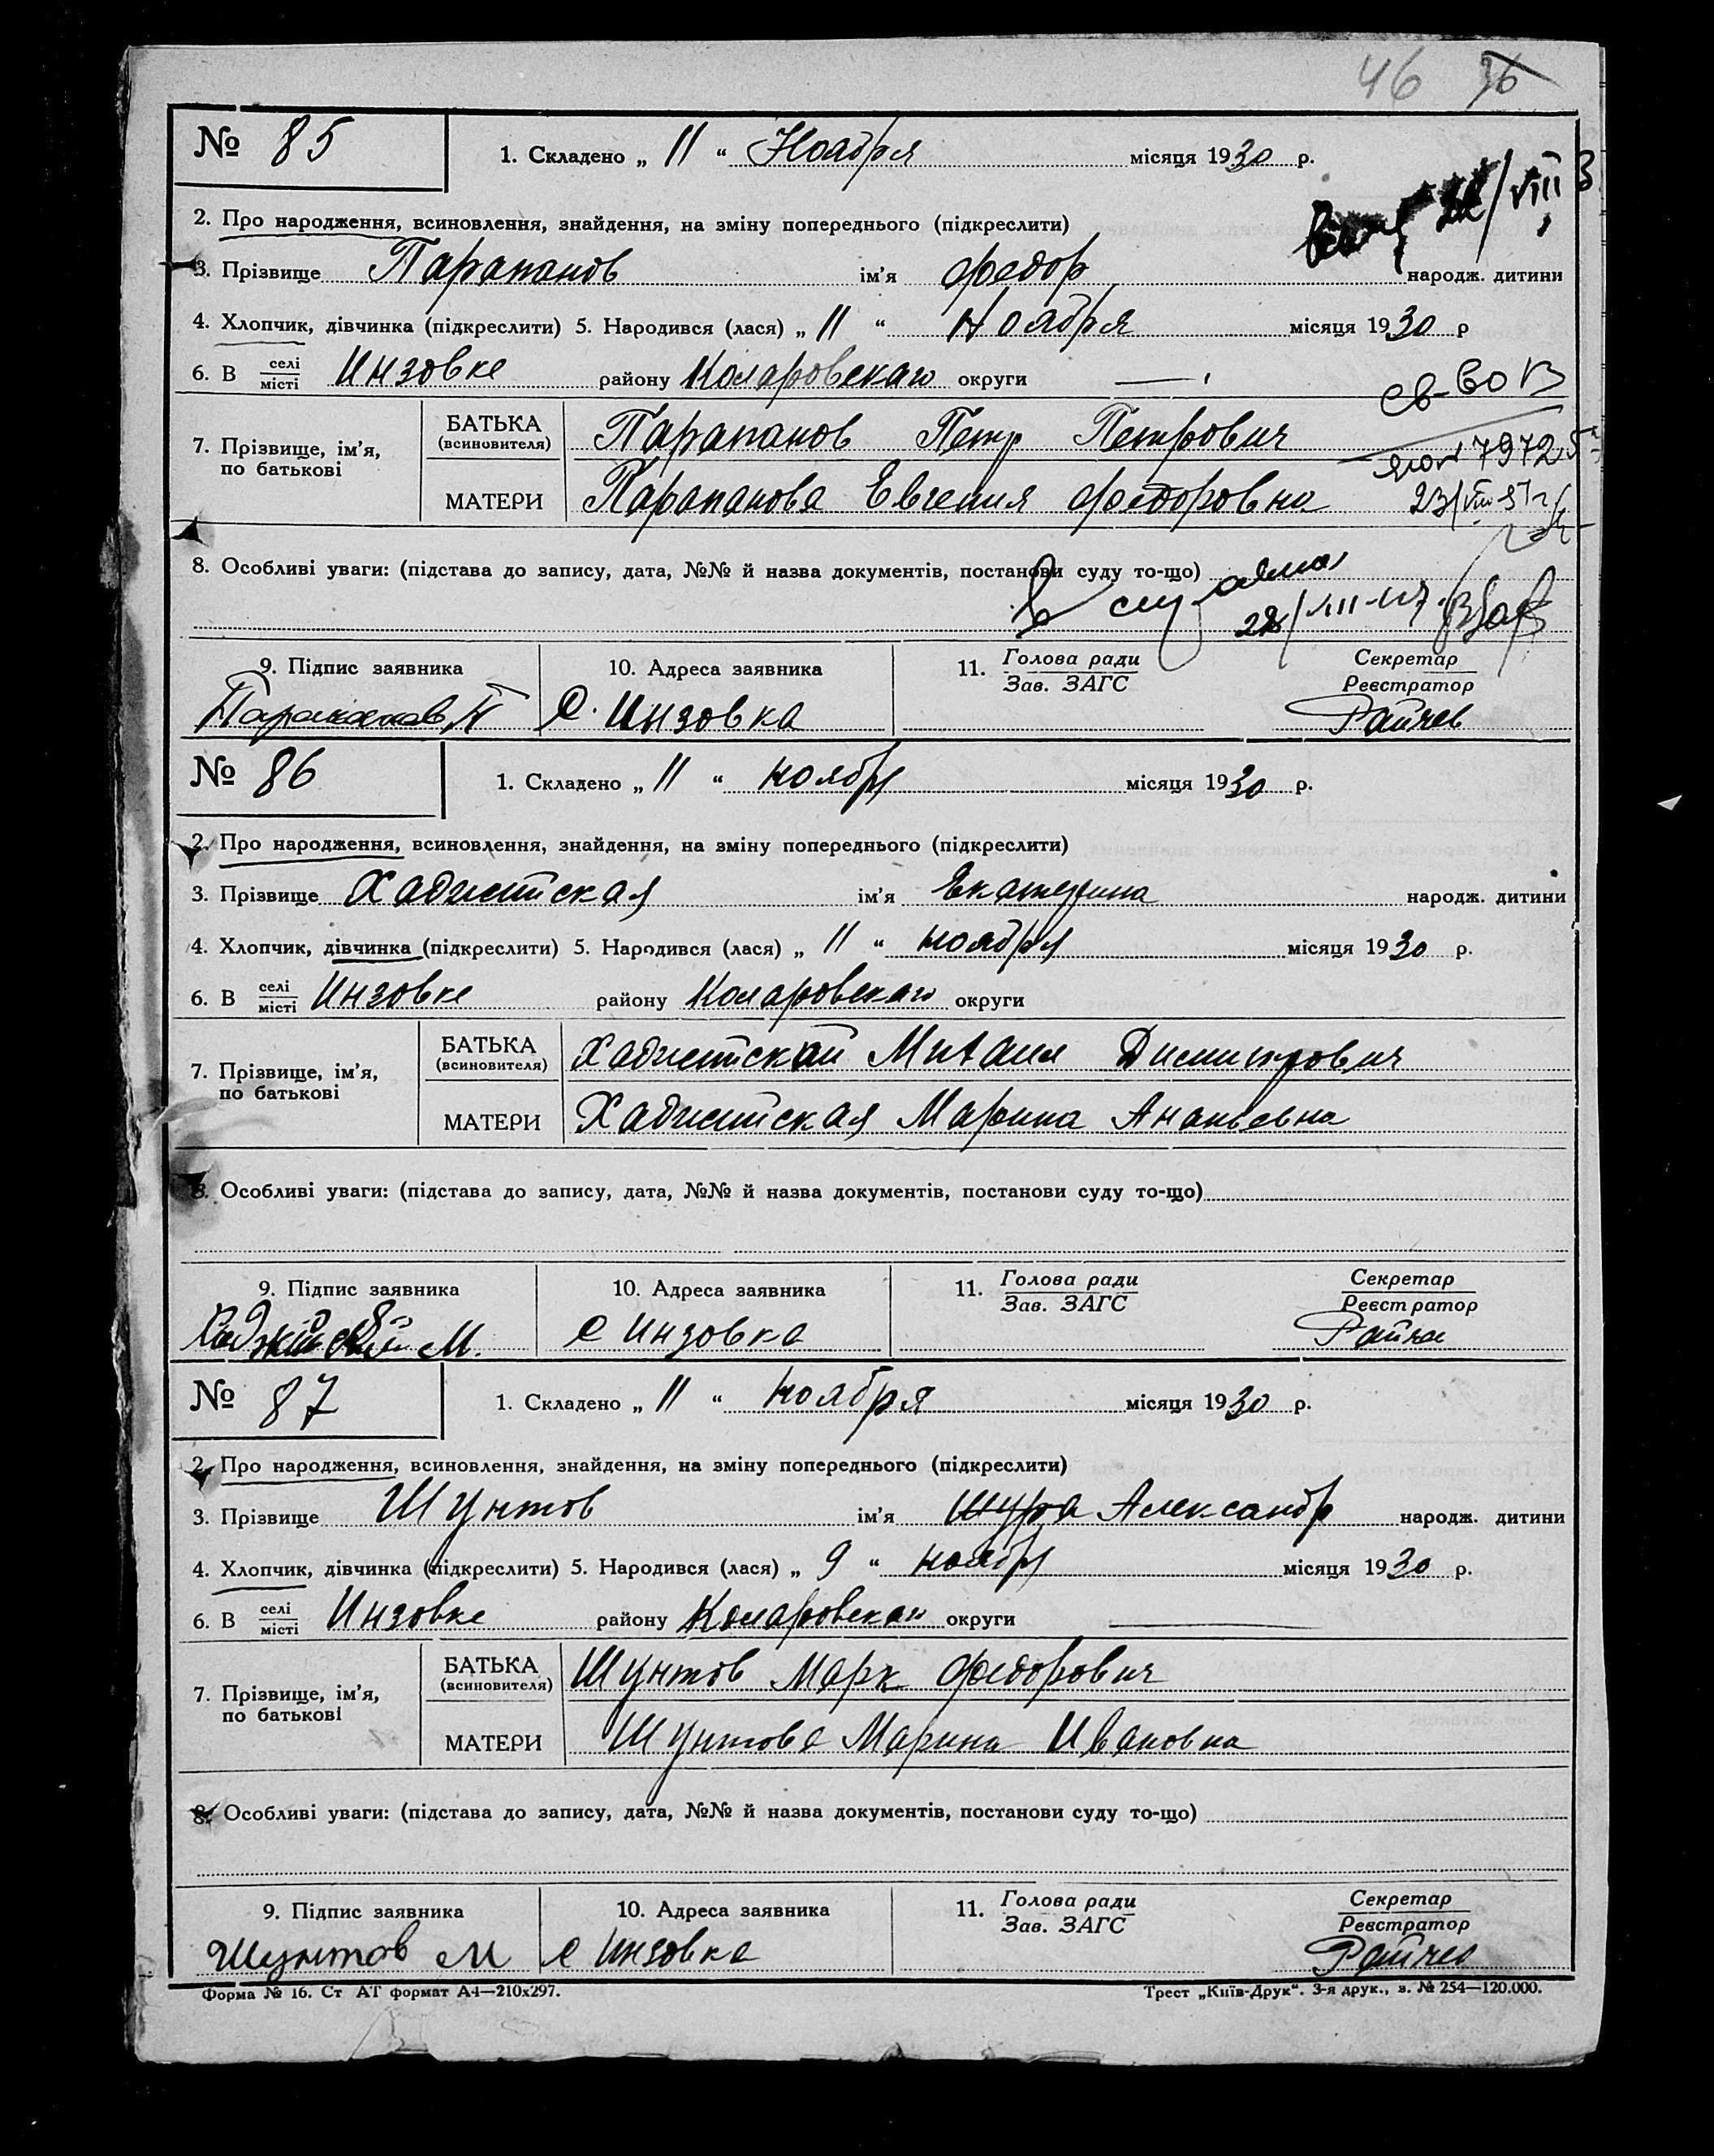 46 36
№ 85 1. Складено „ 11 “ Ноября місяця 1930 р.
2. Про народження, всиновлення, знайдення, на зміну попереднього (підкреслити)
3. Прізвище Парапанов ім'я Федор народж. дитини
4. Хлопчик, дівчинка (підкреслити) 5. Народився (лася) „ 11 “ Ноября місяця 1930 р
6. В селі місті Инзовке району Коларовскаго округи
св-во
7. Прізвище, ім'я, по батькові БАТЬКА (всиновителя) Парапанов Петр Петрович
МАТЕРИ Парапанова Евгения Федоровна
8. Особливі уваги: (підстава до запису, дата, №№ й назва документів, постанови суду то-що)
9. Підпис заявника 10. Адреса заявника 11. Голова ради Зав. ЗАГС Секретар Реєстратор
Парапанов П С. Инзовка Райчев
№ 86 1. Складено „ 11 “ ноября місяця 1930 р.
2. Про народження, всиновлення, знайдення, на зміну попереднього (підкреслити)
3. Прізвище Хаджийская ім'я Екатерина народж. дитини
4. Хлопчик, дівчинка (підкреслити) 5. Народився (лася) „ 11 “ ноября місяця 1930 р.
6. В селі місті Инзовке району Коларовскаго округи
7. Прізвище, ім'я, по батькові БАТЬКА (всиновителя) Хаджийский Михаил Димитрович
МАТЕРИ Хаджийская Марина Ананьевна
8. Особливі уваги: (підстава до запису, дата, №№ й назва документів, постанови суду то-що)
9. Підпис заявника 10. Адреса заявника 11. Голова ради Зав. ЗАГС Секретар Реєстратор
Хаджийский М. С Инзовка Райчев
№ 87 1. Складено „ 11 “ ноября місяця 1930 р.
2. Про народження, всиновлення, знайдення, на зміну попереднього (підкреслити)
3. Прізвище Шунтов ім'я Шура Александр народж. дитини
4. Хлопчик, дівчинка (підкреслити) 5. Народився (лася) „ 9 “ ноября місяця 1930 р.
6. В селі місті Инзовке району Коларовскаго округи
7. Прізвище, ім'я, по батькові БАТЬКА (всиновителя) Шунтов Марк Федорович
МАТЕРИ Шунтова Марина Ивановна
8. Особливі уваги: (підстава до запису, дата, №№ й назва документів, постанови суду то-що)
9. Підпис заявника 10. Адреса заявника 11. Голова ради Зав. ЗАГС Секретар Реєстратор
Шунтов М С Инзовка Райчев
Форма № 16. Ст АТ формат А4—210х297. Трест „Київ-Друк“. 3-я друк., з. № 254—120.000.